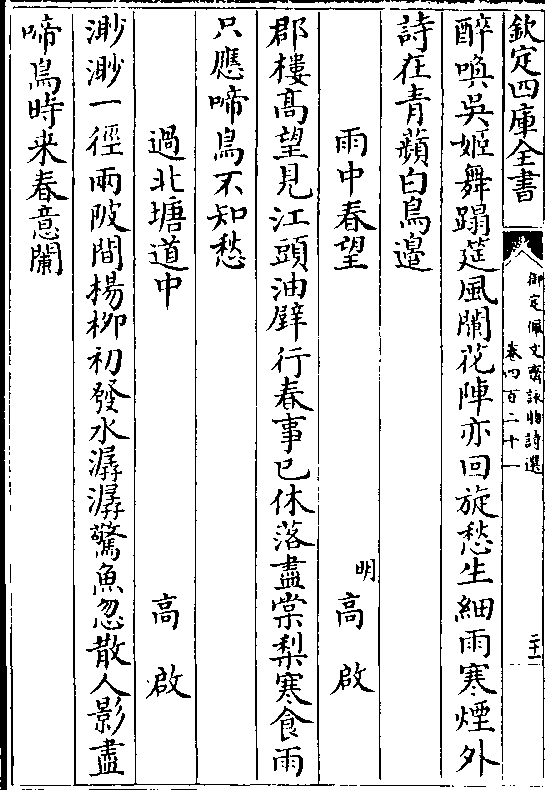 欽定四庫全書
御定佩文齋詠物詩選
卷四百二十一
二十一
醉喚吳姬舞蹋筵風闌花陣亦回旋愁生細雨寒煙外
詩在青蘋白鳥邊
雨中春望
明高啟
郡樓高望見江頭油壁行春事已休落盡棠梨寒食雨
只應啼鳥不知愁
過北塘道中
高啟
渺渺一徑兩陂間楊柳初發水潺潺驚魚忽散人影盡
啼鳥時来春意闌